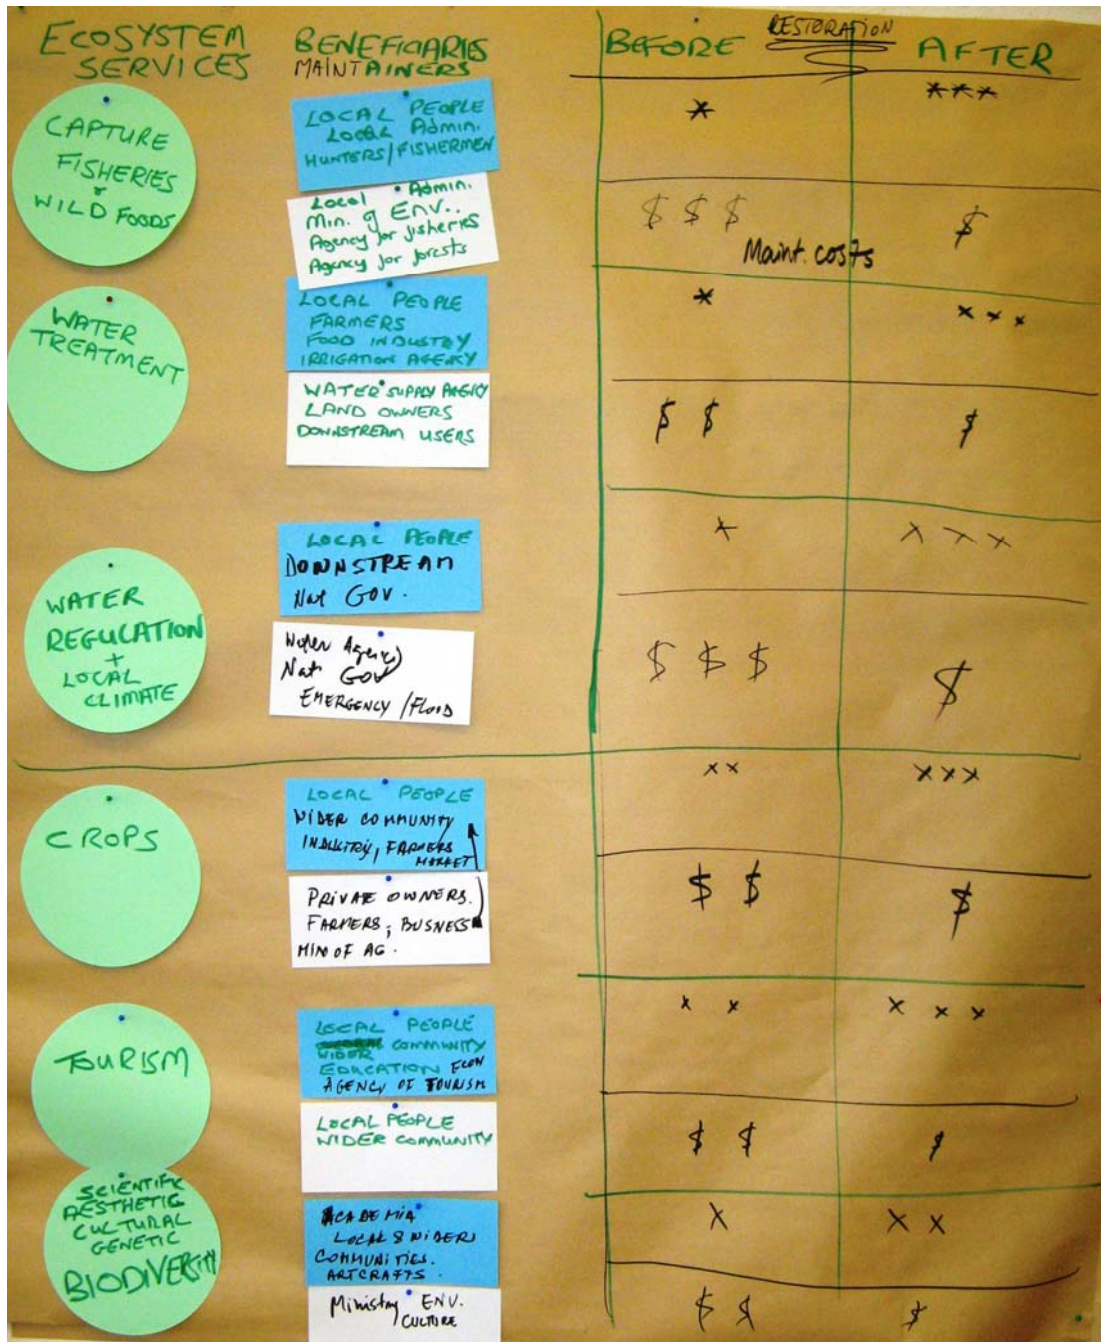 ECOSYSTEM
SERVICES
BENEFICIARIES
MAINTAINERS
BEFORE
RESTORATION
AFTER
CAPTURE
FISHERIES
&
WILD FOODS
LOCAL PEOPLE
LOCAL Admin.
HUNTERS/FISHERMEN
*
***
Local Admin.
Min. of ENV..
Agency for fisheries
Agency for forests
$ $ $
$
Maint. costs
WATER
TREATMENT
LOCAL PEOPLE
FARMERS
FOOD INDUSTRY
IRRIGATION AGENCY
*
* * *
WATER SUPPLY AGENCY
LAND OWNERS
DOWNSTREAM USERS
$ $
$
WATER
REGULATION
+
LOCAL
CLIMATE
LOCAL PEOPLE
DOWNSTREAM
Nat GOV.
x
x x x
Water Agency
Nat GOV
EMERGENCY /FLOOD
$ $ $
$
CROPS
LOCAL PEOPLE
WIDER COMMUNITY
INDUSTRY, FARMERS
MARKET
x x
x x x
PRIVATE OWNERS.
FARMERS, BUSNESS
MIN OF AG.
$ $
$
TOURISM
LOCAL PEOPLE
WIDER COMMUNITY
EDUCATION ECON
AGENCY OF TOURISM
x x
x x x
LOCAL PEOPLE
WIDER COMMUNITY
$ $
$
SCIENTIFIC
AESTHETIC
CULTURAL
GENETIC
BIODIVERSITY
ACADEMIA
LOCAL & WIDER
COMMUNITIES.
ARTCRAFTS.
x
x x
Ministry ENV.
CULTURE
$ $
$